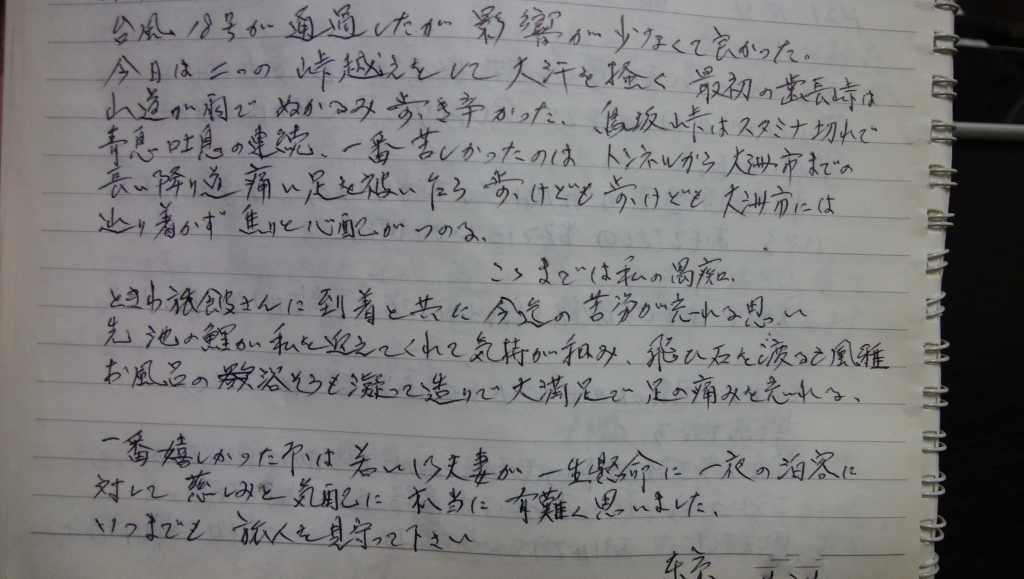 台風18号が通過したが影響が少なくて良かった。
今日は二つの峠越えをして大汗を掻く 最初の歯長峠は
山道が雨でぬかるみ歩き辛かった、鳥坂峠はスタミナ切れで
青息吐息の連続、一番苦しかったのはトンネルから大洲市までの
長い降り道 痛い足を被い乍ら 歩けども歩けども 大洲市には
辿り着かず 焦りと心配がつのる、
ここまでは私の愚痴、
ときわ旅館さんに到着と共に 今迄の苦労が忘れる思い
先 池の鯉が私を迎えてくれて気持が和み、飛び石を渡るも風雅
お風呂の数 浴そうも凝って造りで大満足で足の痛みを忘れる、
一番嬉しかった 若い 夫妻が 一生懸命に 一夜の泊客に
対して 慈しみと気配に 本当に 有難く思いました、
いつまでも 旅人を見守って下さい
東京